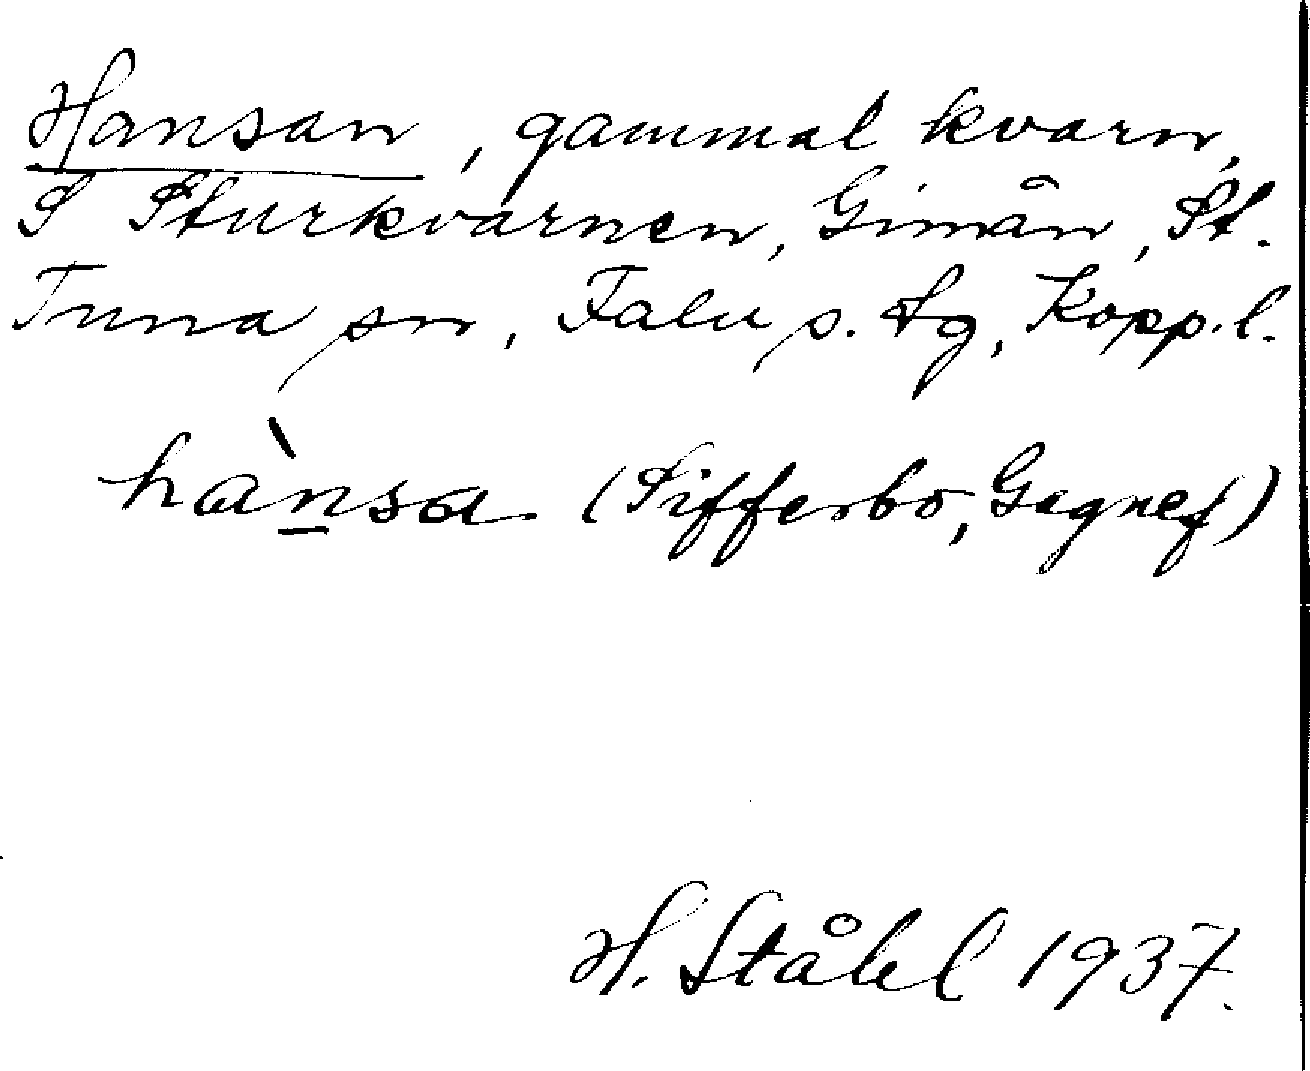 Hansan, gammal kvarn,
S Sturkvarnen, Gimån, St.
Tuna sn, Falu s. tg, Kopp.l.
hànsa (Sifferbo, Gagnef)
H. Ståhl 1937.